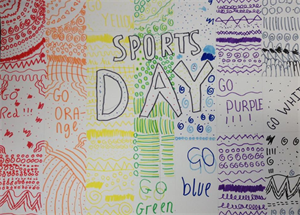 SPORTS
DAY
Go
Red!!!
GO
ORA
nge
GO
Green
GO
blue
GO
PURPLE
!!!!
GO WHIT